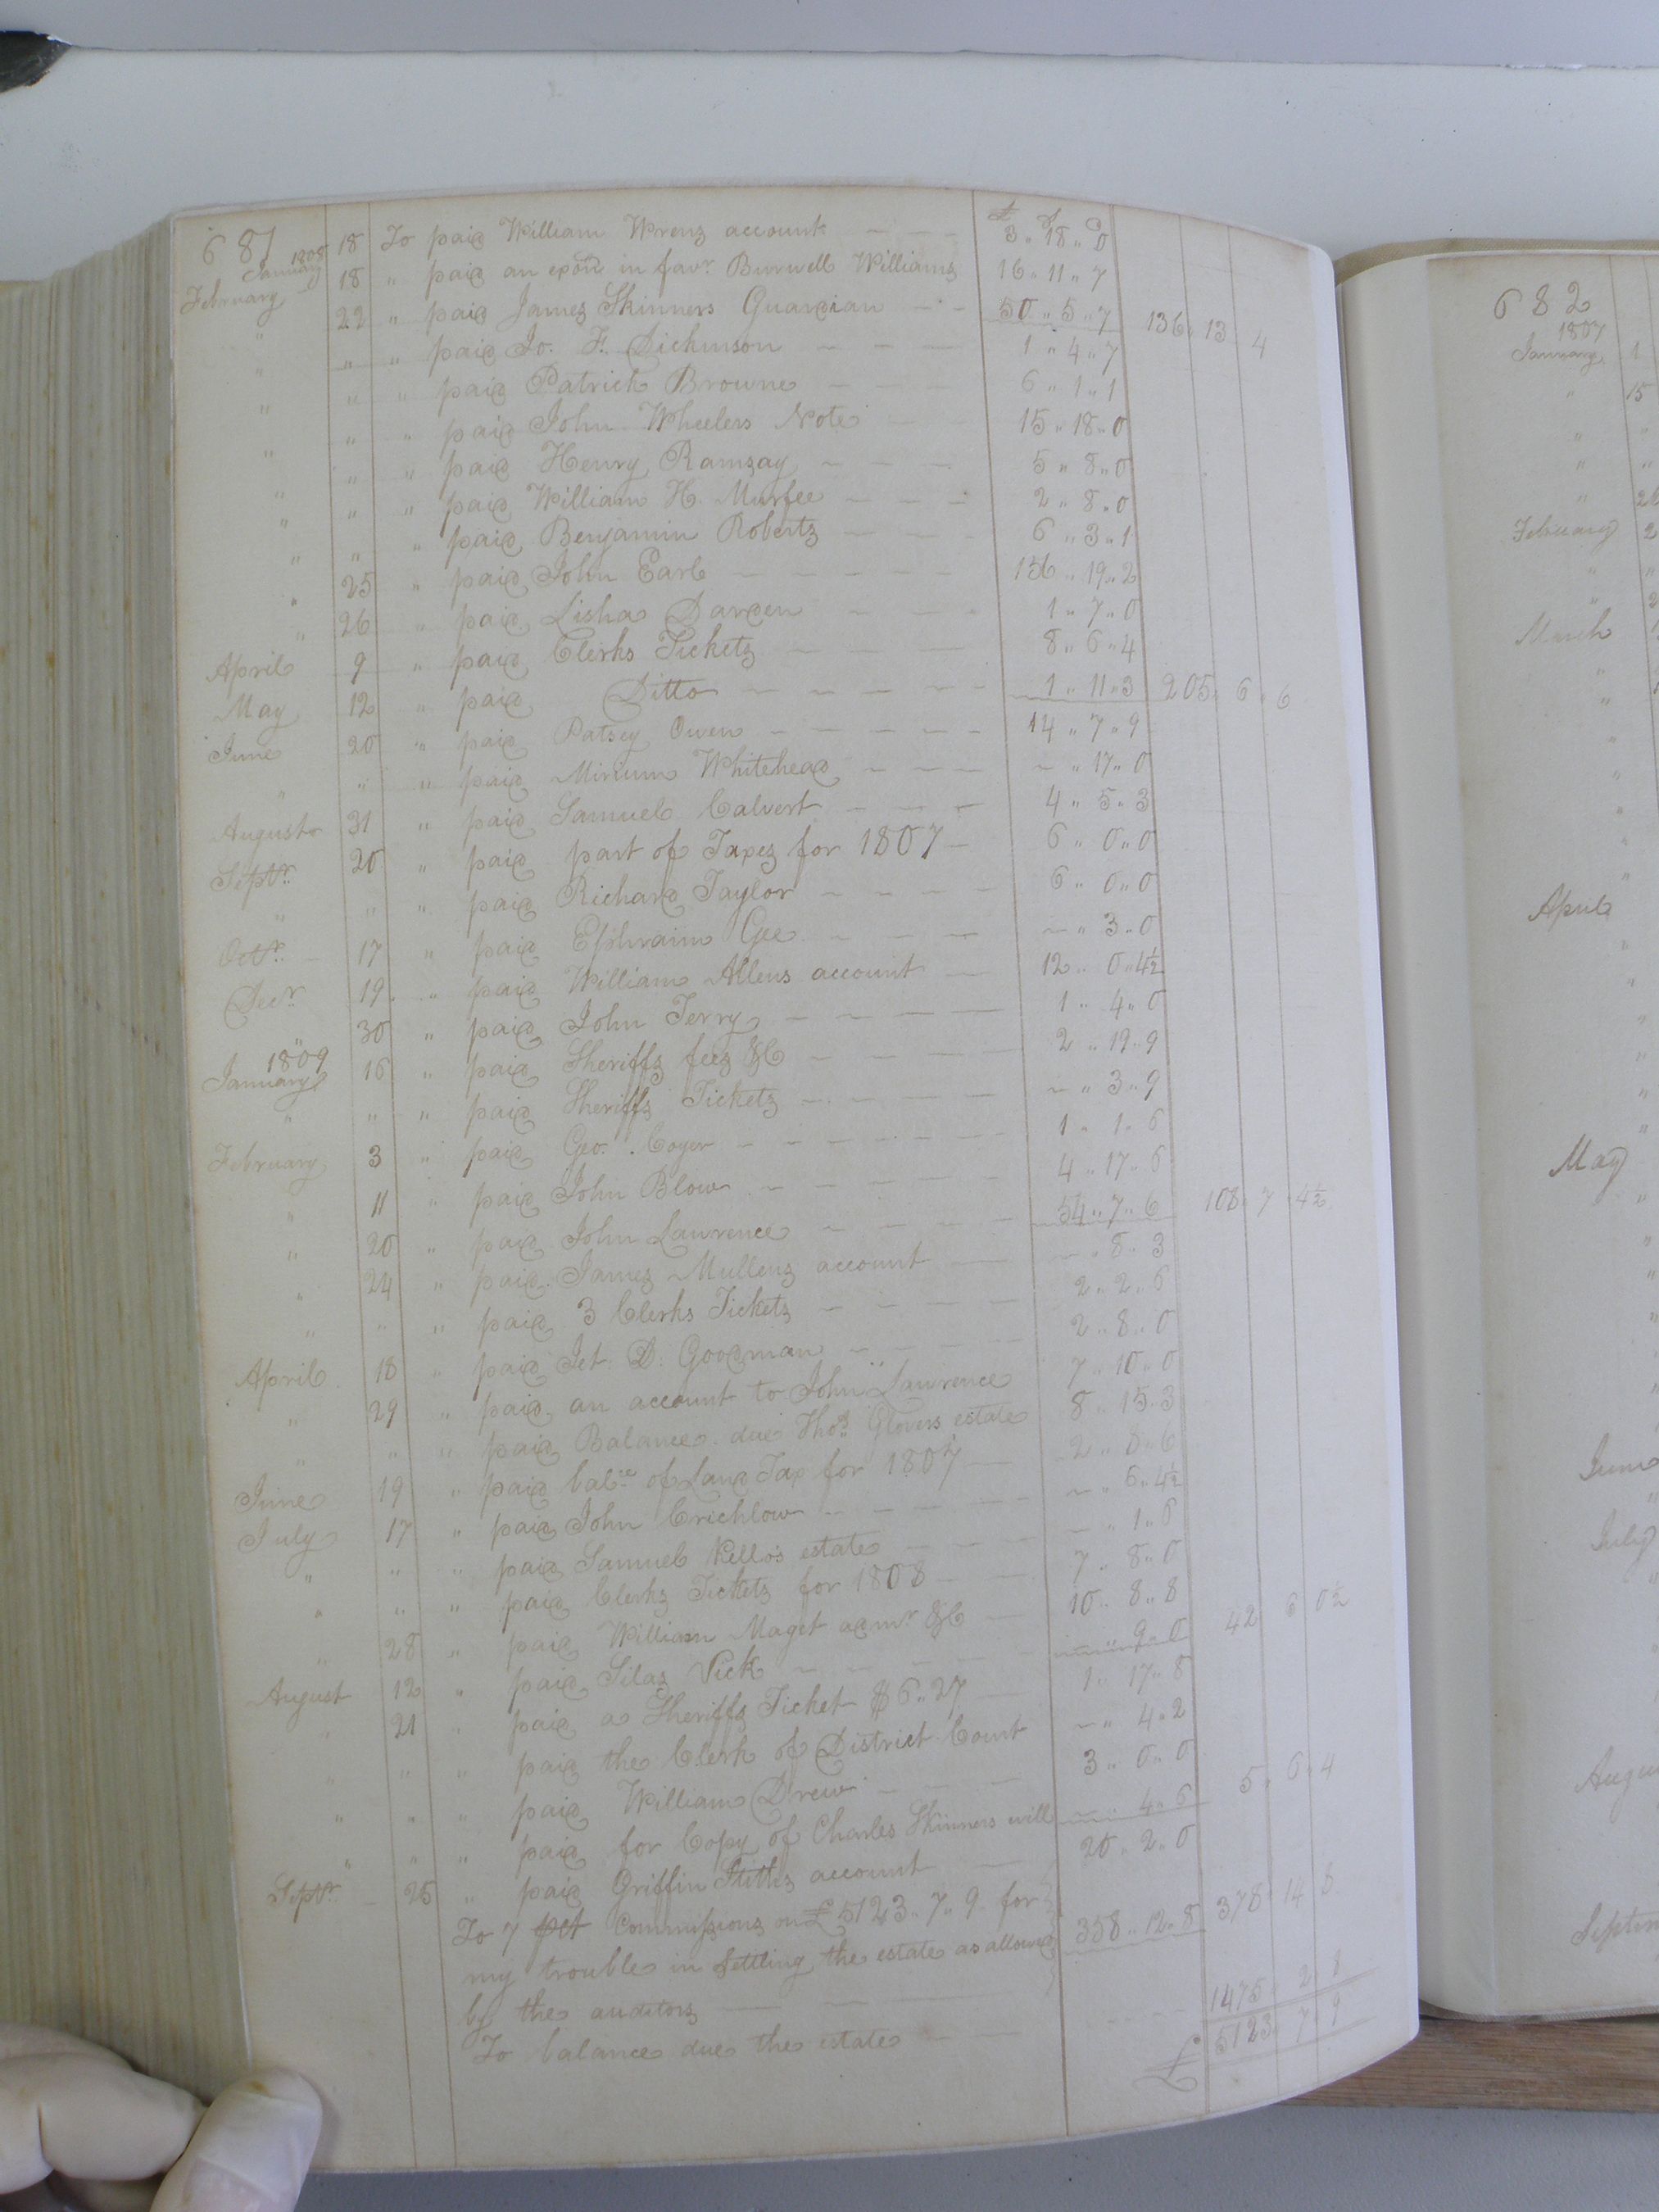 681 £ S D
1808 January 18 To paid William Wrens account 3 „ 18 „ 0
February 18 „ paid an exon in favr. Burwell Williams 16 „ 11 „ 7
„ 22 „ paid James Skinners Guardian 50 „ 5 „ 7 136 13 4
„ „ „ paid Jo. F. Dickinson 1 „ 4 „ 7
„ „ „ paid Patrick Browne 6 „ 1 „ 1
„ „ „ paid John Wheelers Note 15 „ 18 „ 0
„ „ „ paid Henry Ramsay 5 „ 8 „ 0
„ „ „ paid William H. Murfee 2 „ 8 „ 0
„ „ „ paid Benjamin Roberts 6 „ 3 „ 1
„ 25 „ paid John Earl 156 „ 19 „ 2
„ 26 „ paid Lisha Darden 1 „ 7 „ 0
April 9 „ paid Clerks Tickets 8 „ 6 „ 4
May 12 „ paid Ditto 1 „ 11 „ 3 205 „ 6 „ 6
June 20 „ paid Patsey Owen 14 „ 7 „ 9
„ „ „ paid Mirium Whitehead — „ 17 „ 0
August 31 „ paid Samuel Calvert 4 „ 5 „ 3
Septr. 20 „ paid part of Taxes for 1807 6 „ 0 „ 0
„ „ „ paid Richard Taylor 6 „ 0 „ 0
Octr. 17 „ paid Ephraim Gee — „ 3 „ 0
Decr. 19 „ paid William Allens account 12 „ 0 „ 4½
„ 30 „ paid John Terry 1 „ 4 „ 0
1809 January 16 „ paid Sheriffs fees &C 2 „ 19 „ 9
„ „ „ paid Sheriffs Tickets — „ 3 „ 9
February 3 „ paid Geo. Coger 1 „ 1 „ 6
„ 11 „ paid John Blow 4 „ 17 „ 6
„ 20 „ paid John Lawrence 54 „ 7 „ 6 108 7 4½
„ 24 „ paid James Mullens account — „ 8 „ 3
„ „ „ paid 3 Clerks Tickets 2 „ 2 „ 6
April 18 „ paid Jet. D. Goodman 2 „ 8 „ 0
„ 29 „ paid an account to John Lawrence 7 „ 10 „ 0
„ „ „ paid Balance due Thos. Glovers estate 8 „ 15 „ 3
June 19 „ paid balce. of Land Tax for 1807 2 „ 8 „ 6
July 17 „ paid John Crichlow — „ 6 „ 4½
„ „ „ paid Samuel Kello's estate — „ 1 „ 6
„ „ „ paid Clerks Tickets for 1808 7 „ 8 „ 0
„ 28 „ paid William Maget admr. &C 10 „ 8 „ 8
August 12 „ paid Silas Vick — „ 9 „ 0 42 6 0½
„ 21 „ paid a Sheriffs Ticket $6.27 1 „ 17 „ 8
„ „ „ paid the Clerk of District Court — „ 4 „ 2
„ „ „ paid William Drew 3 „ 0 „ 0
„ „ „ paid for Copy of Charles Skinners will — „ 4 „ 6 5 „ 6 „ 4
Septr. 25 „ paid Griffin Stiths account 20 „ 2 „ 0
To 7 pct Commissions on £5123 „ 7 „ 9 for
my trouble in settling the estate as allowed 358 „ 12 „ 8 378 14 8
by the auditors
To balance due the estate 1475 2 1
£ 5123 7 9
682
1807
January 1
„ 15
February
March
April
May
June
July